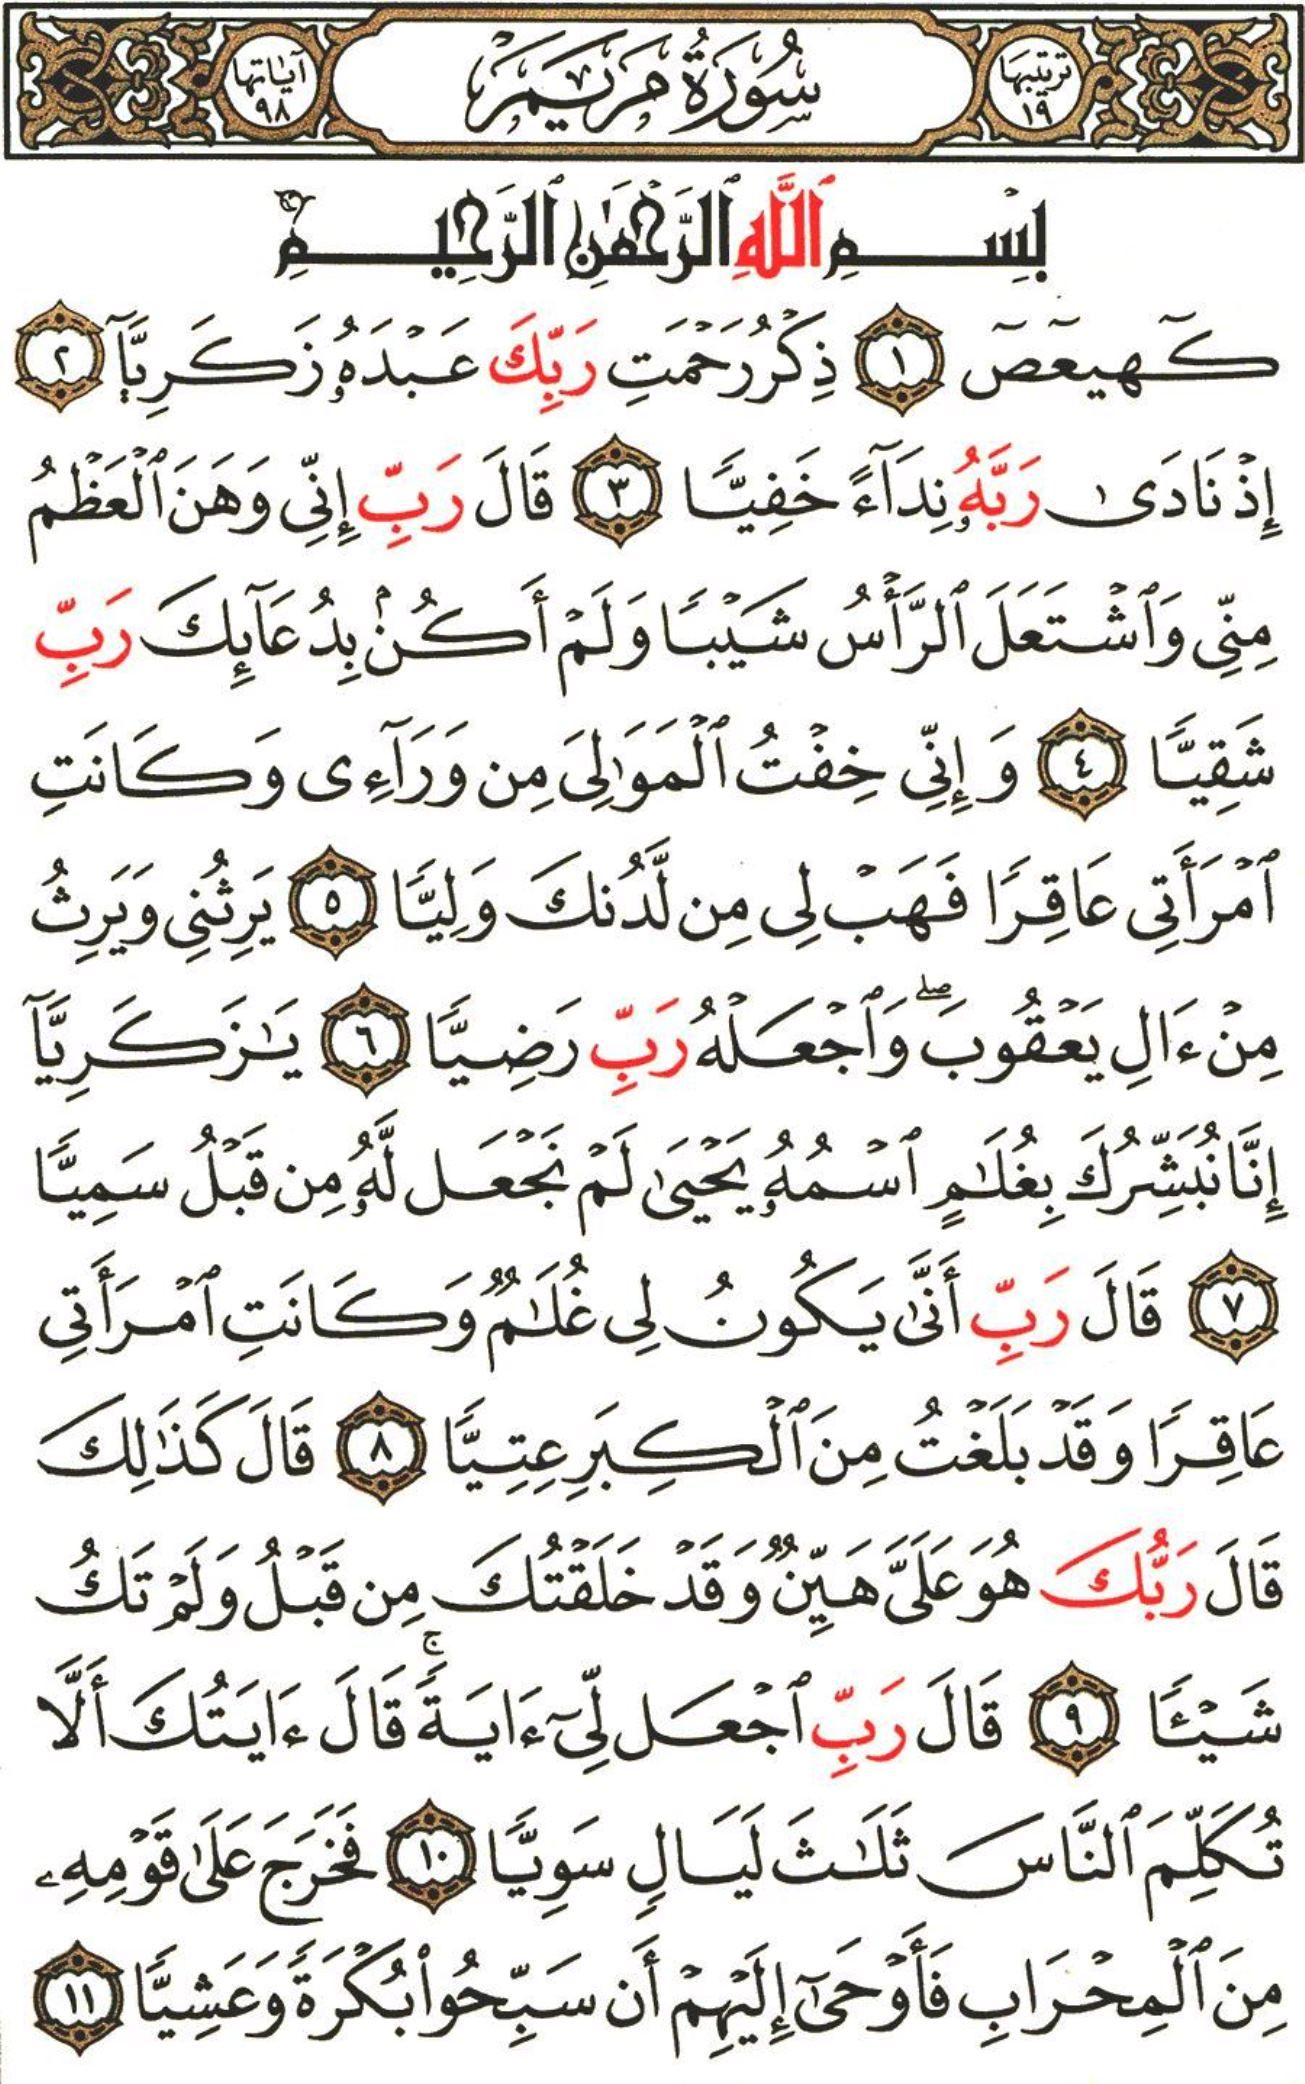 ترتيبها ١٩
سُورَةُ مَرْيَمَ
آياتها ٩٨
بِسْمِ ٱللَّهِ ٱلرَّحْمَٰنِ ٱلرَّحِيمِ
كٓهيعٓصٓ ١ ذِكْرُ رَحْمَتِ رَبِّكَ عَبْدَهُۥ زَكَرِيَّآ ٢
إِذْ نَادَىٰ رَبَّهُۥ نِدَآءً خَفِيًّا ٣ قَالَ رَبِّ إِنِّى وَهَنَ ٱلْعَظْمُ
مِنِّى وَٱشْتَعَلَ ٱلرَّأْسُ شَيْبًا وَلَمْ أَكُنۢ بِدُعَآئِكَ رَبِّ
شَقِيًّا ٤ وَإِنِّى خِفْتُ ٱلْمَوَٰلِىَ مِن وَرَآءِى وَكَانَتِ
ٱمْرَأَتِى عَاقِرًا فَهَبْ لِى مِن لَّدُنكَ وَلِيًّا ٥ يَرِثُنِى وَيَرِثُ
مِنْ ءَالِ يَعْقُوبَ ۖ وَٱجْعَلْهُ رَبِّ رَضِيًّا ٦ يَٰزَكَرِيَّآ
إِنَّا نُبَشِّرُكَ بِغُلَٰمٍ ٱسْمُهُۥ يَحْيَىٰ لَمْ نَجْعَل لَّهُۥ مِن قَبْلُ سَمِيًّا
٧ قَالَ رَبِّ أَنَّىٰ يَكُونُ لِى غُلَٰمٌ وَكَانَتِ ٱمْرَأَتِى
عَاقِرًا وَقَدْ بَلَغْتُ مِنَ ٱلْكِبَرِ عِتِيًّا ٨ قَالَ كَذَٰلِكَ
قَالَ رَبُّكَ هُوَ عَلَىَّ هَيِّنٌ وَقَدْ خَلَقْتُكَ مِن قَبْلُ وَلَمْ تَكُ
شَيْـًٔا ٩ قَالَ رَبِّ ٱجْعَل لِّىٓ ءَايَةً ۚ قَالَ ءَايَتُكَ أَلَّا
تُكَلِّمَ ٱلنَّاسَ ثَلَٰثَ لَيَالٍ سَوِيًّا ١٠ فَخَرَجَ عَلَىٰ قَوْمِهِۦ
مِنَ ٱلْمِحْرَابِ فَأَوْحَىٰٓ إِلَيْهِمْ أَن سَبِّحُوا۟ بُكْرَةً وَعَشِيًّا ١١